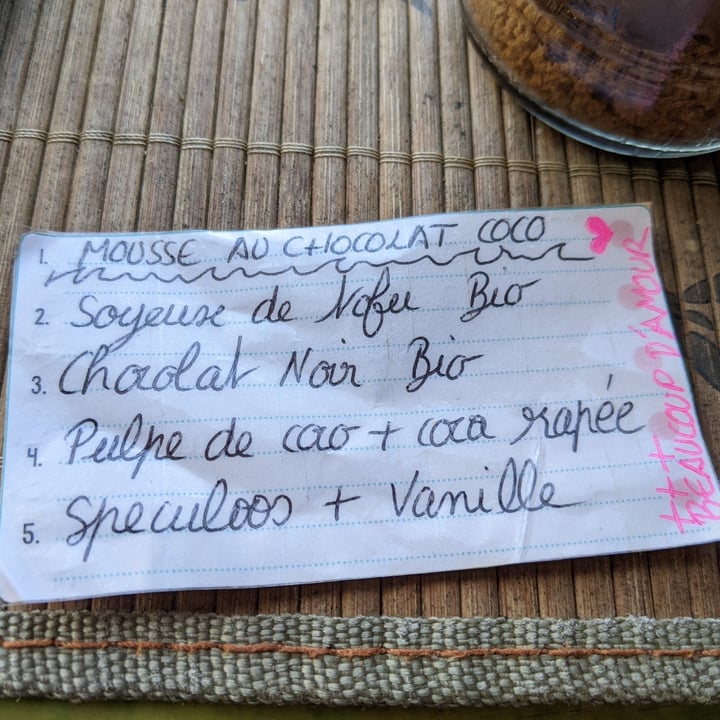 1. MOUSSE AU CHOCOLAT COCO
2. Soyeux de Tofu Bio
3. Chocolat Noir Bio
4. Pulpe de coco + coco rapée
5. Speculoos + Vanille
+++ BEAUCOUP D'AMOUR